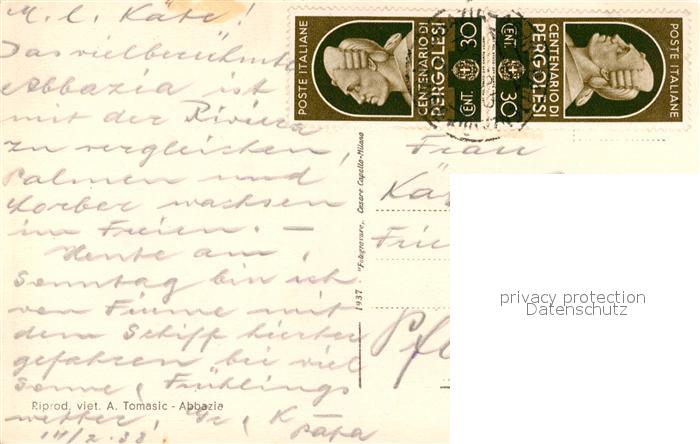 M. l. Käte!
Das vielberühmte
Abbazia ist
mit der Riviera
zu vergleichen,
Palmen und
Lorber wachsen
im Freien. —
Heute am
Sonntag bin ich
von Fiume mit
dem Schiff hierher
gefahren bei viel
Sonne, Frühlings
wetter, Gr, K
Papa
Riprod. viet. A. Tomasic - Abbazia
1937 "Fotogravure" Cesare Capello-Milano
POSTE ITALIANE
CENTENARIO DI
PERGOLESI
CENT. 30
POSTE ITALIANE
CENTENARIO DI
PERGOLESI
CENT. 30
Frau
privacy protection
Datenschutz